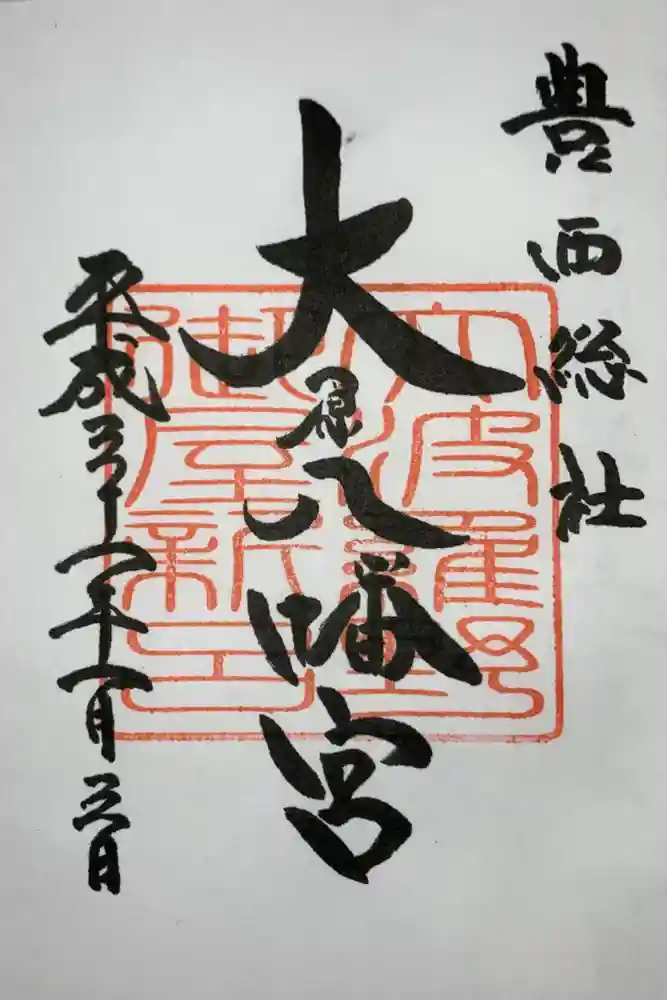 豊西総社
大原八幡宮
平成二十八年八月三日